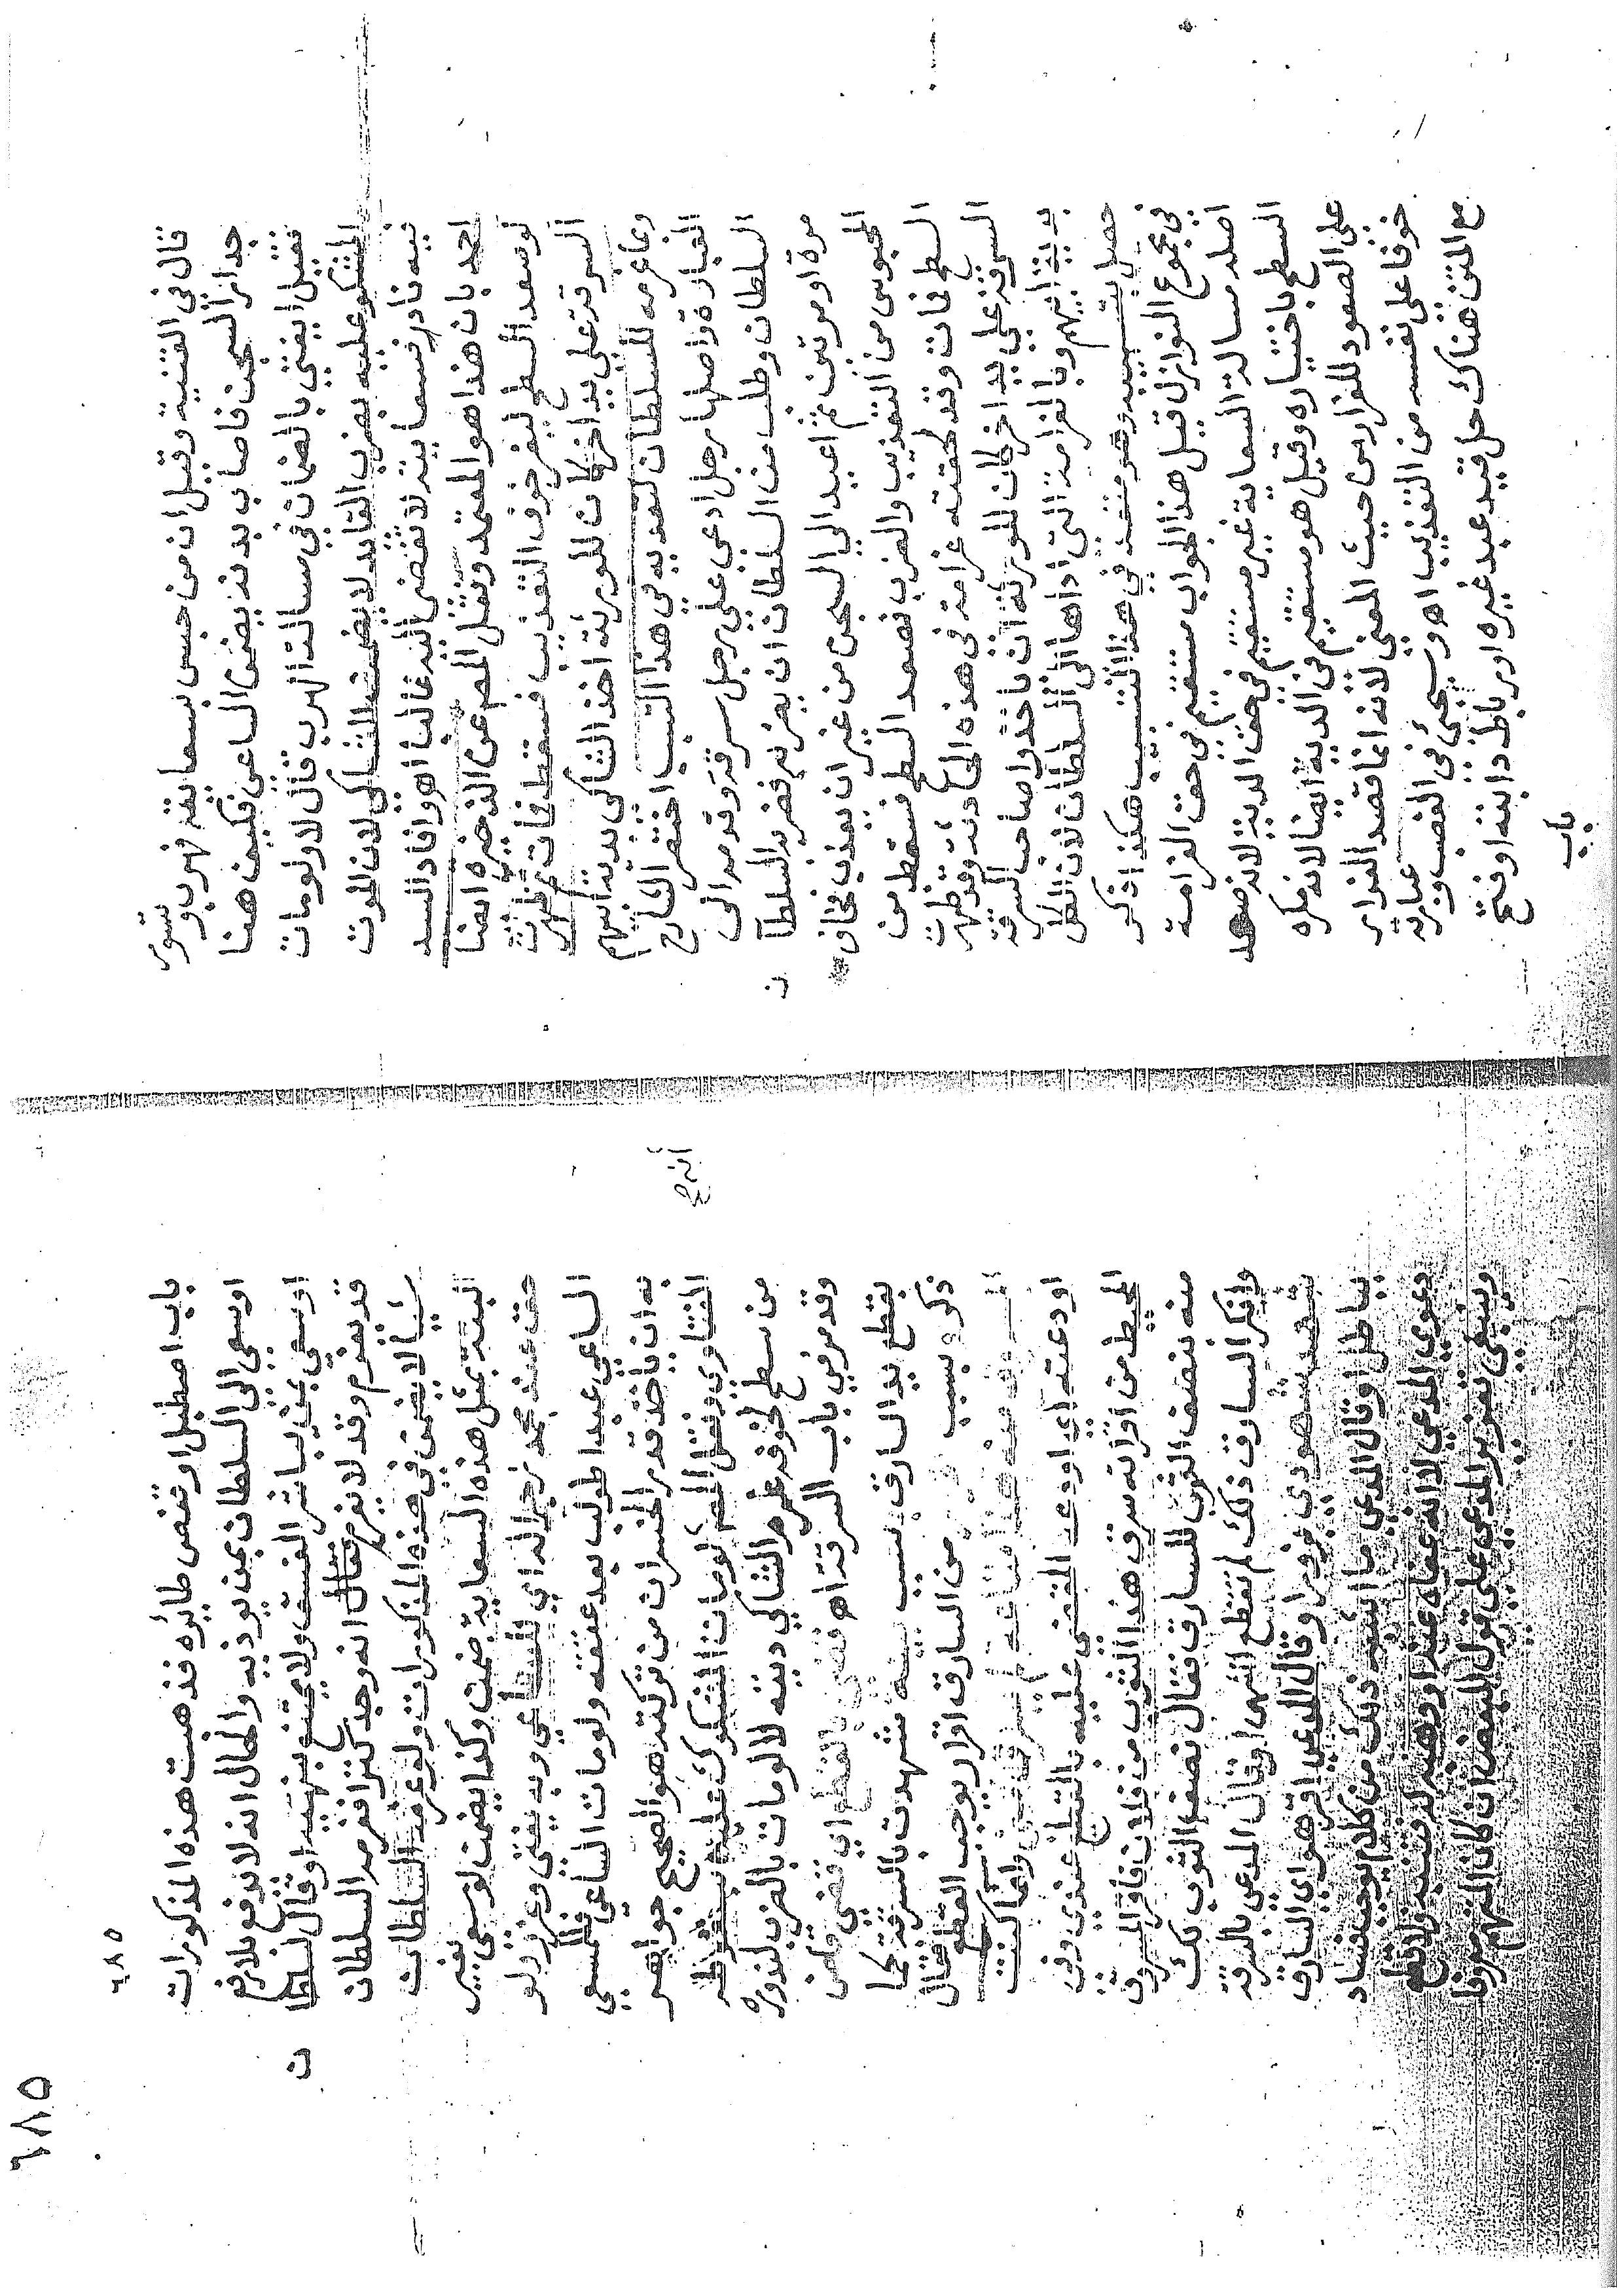 قال في القنية وقيل ان من حبس بسعاية فهرب وتسور
جدار السجن فاصاب بدنه يضمن الساعي فكيف هنا
فقيل ايفتي بالضمان في مسالة الهرب فقال لا ولو مات
المشكو عليه بضرب القايد لا يضمن الشاكي لان الموت
فيه نادر فسعايته لا تفضي اليه غالبا اهو افاد السيد
احمد بان هذا هو المعتمد ونقل المص عن الذخيره ايضا
لو صعد السطح ليفر خوف التعذيب فسقط فمات ثم ظهرت
السرقة على يد اخر كان للورثة اخذ الشاكي بدية ابيهم
وبما غرمه للسلطان لتعديه في هذا التسبب اختصر الشارح
العبارة واصلها رجل ادعى على رجل سرقة وقدمه الى
السلطان وطلب من السلطان ان يضربه فضربه السلطان
مرة او مرتين ثم اعيد الى السجن من غير ان يعذب فخاف
المحبوس من التعذيب والضرب فصعد السطح فسقط من
السطح فمات وقد لحقته غرامة في هذه الحادثة وقد ظهرت
السرقة على يد اخر كان للورثة ان ياخذوا صاحب السرقة
بدية ابيهم وبالغرامة التي اداها الى السلطان لان الكل
حصل بتسبيبه وهو متعد في هذا التسبيب هكذا ذكر
في مجموع النوازل قيل هذا الجواب مستقيم في حق الغرامة
اصله مسالة السعاية غير مستقيم في حق الدية لانه صعد
السطح باختياره وقيل هو مستقيم في الدية ايضا لانه مكره
على الصعود للفرار من حيث المعنى لانه انما قصد الفرار
خوفا على نفسه من التعذيب اهو وسيجئ في الغصب وعبارته
مع المتن هناك حل قيد عبد غيره او رباط دابته او فتح
باب
٦٨٥
٦٨٥
باب اصطبل او قفص طائره فذهبت هذه المذكورات
او سعى الى السلطان بمن يوذيه والحال انه لا يدفع بلا رفع
او سعى بمن يباشر الفسق ولا يمتنع بنهيه او قال لسلطان
قد يغرم وقد لا يغرم فقال انه وجد كنزا فغرمه السلطان
شيئا لا يضمن في هذه المذكورات ولو غرمه السلطان
البتة بمثل هذه السعاية ضمن وكذا يضمن لو سعى بغير
حق عند محمد زجرا له اي للساعي وبه يفتى وعزر ولو
الساعي عبدا طولب بعد عتقه ولو مات الساعي فللمسعي
به ان ياخذ قدر الخسران من تركته هو الصحيح جواهر
الفتاوى ونقل المص انه لو مات المشكو عليه بسقوطه
من سطح لخوفه غرم الشاكي ديته لا لو مات بالضرب لندوره
وقد مر في باب السرقة اهو قضى بالقطع اي قضي قاض
بقطع يد السارق بسبب بينه شهدت بالسرقة كما
ذكر وبسبب من السارق اقرار يوجب القطع فقال
المسروق منه هذا متاعه لم يسرقه مني وانما كنت
اودعته اي اودعه المقضي عليه بالقطع عندي وفي
المحيط من اقر انه سرق هذا الثوب من فلان فاقر المسروق
منه بنصف الثوب للسارق فقال نصف الثوب لك
وانكر السارق ذلك لم تقطع انتهى او قال المدعي بالسرقة
شهد شهودي بزور او قال المدعي اقر هو اي السارق
بباطل او قال المدعي ما اشبه ذلك من كلام يوجب فساد
دعوى المدعي لانه عفاه عنه